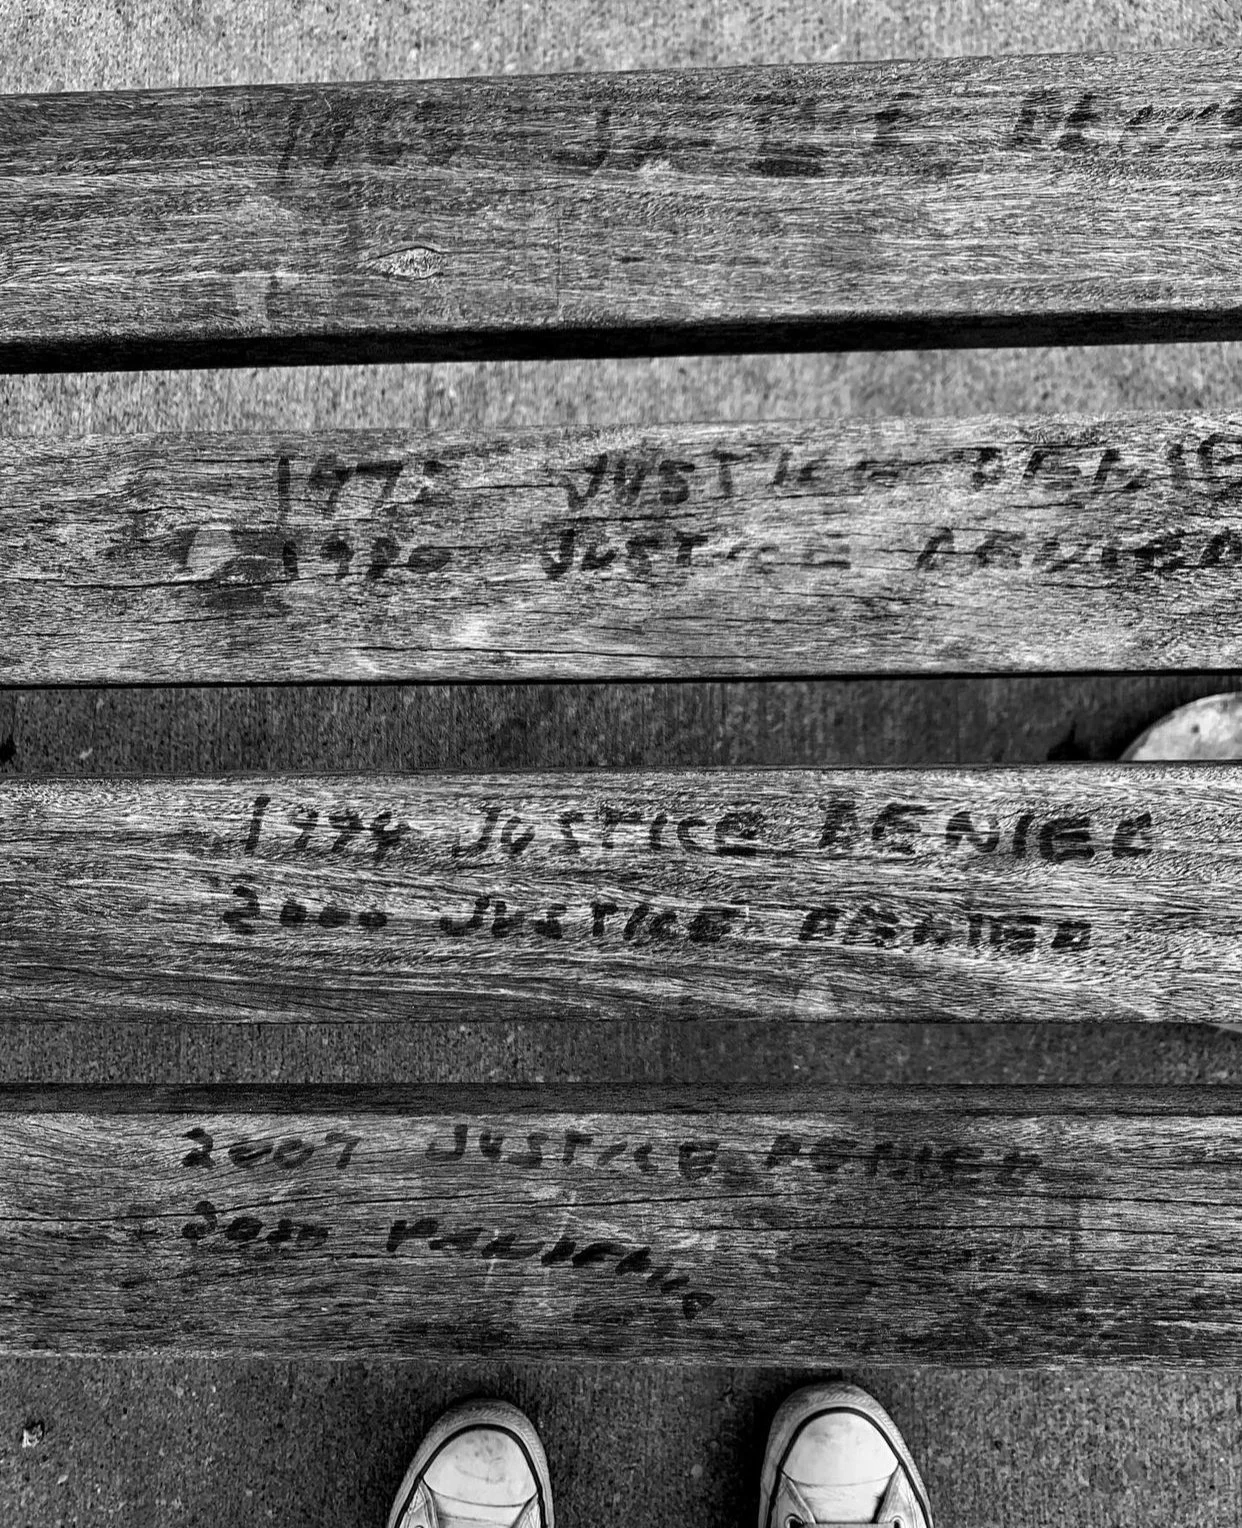 JUSTICE DENIED
1980 JUSTICE DENIED
1994 JUSTICE DENIED
2000 JUSTICE DENIED
2007 JUSTICE DENIED
2020